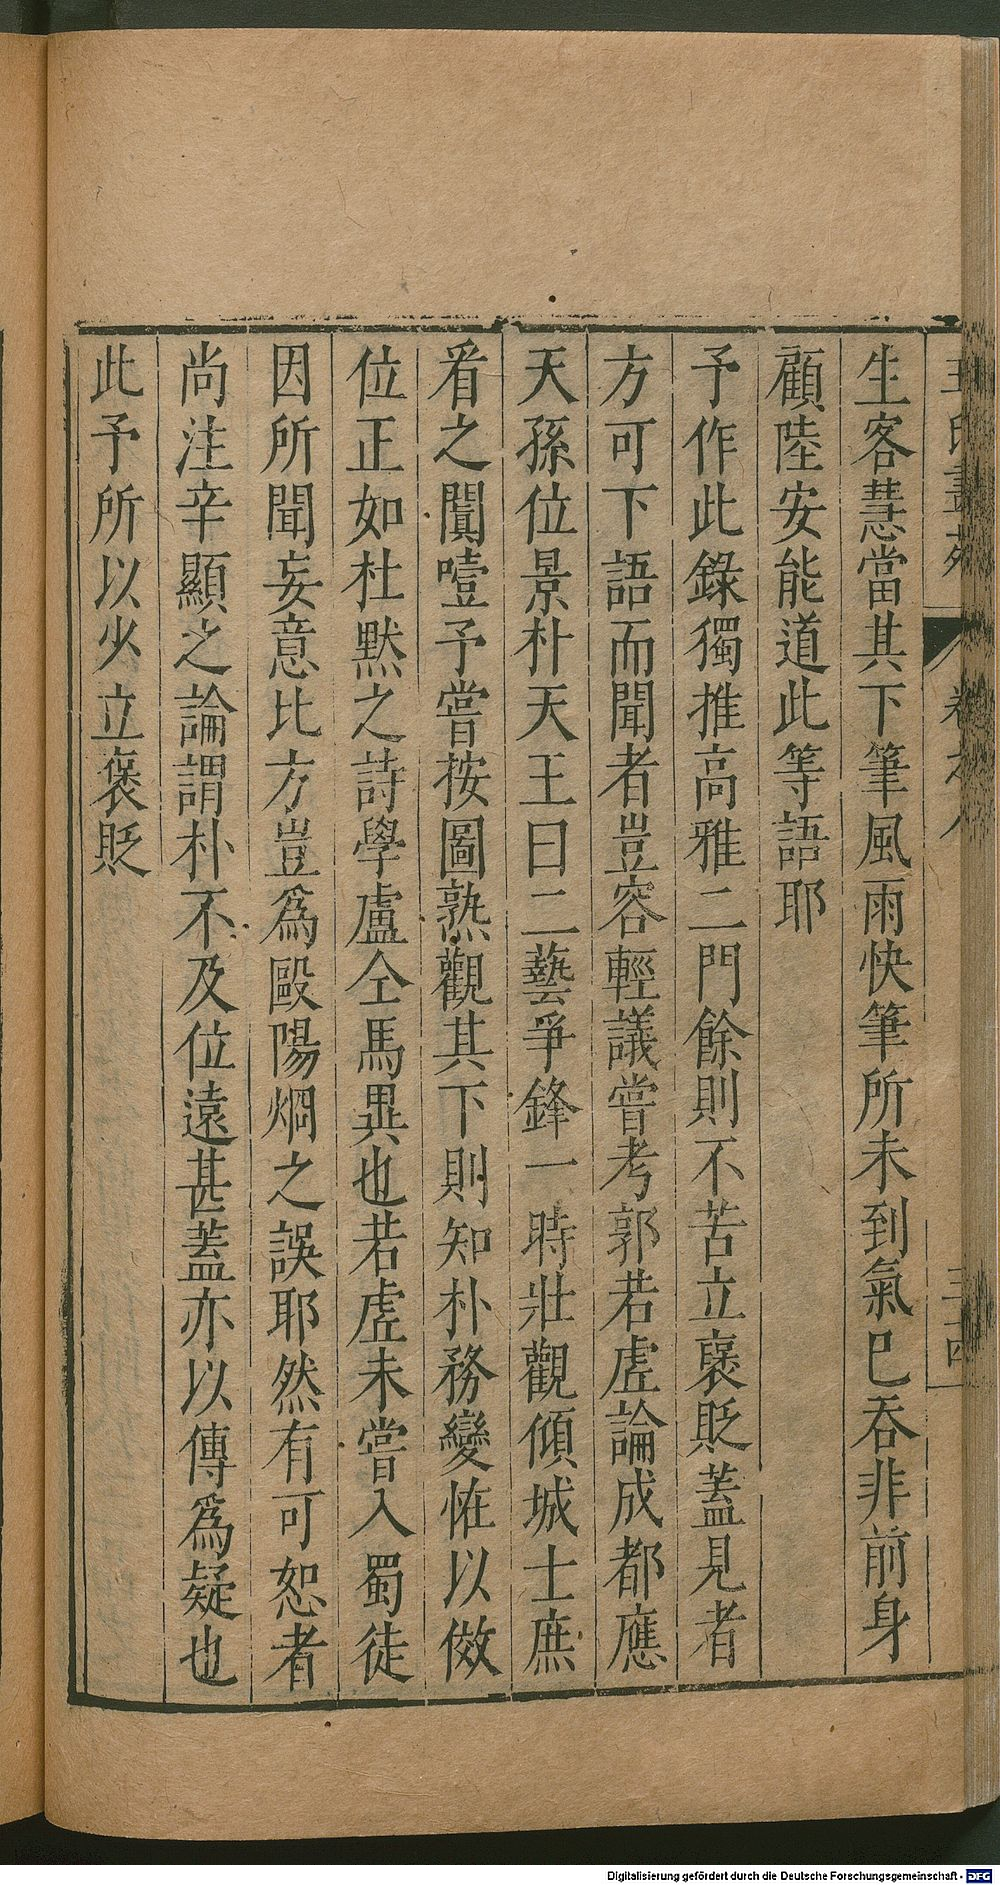 王氏畫苑 卷之八 三十四
生客慧當其下筆風雨快筆所未到氣已吞非前身
顧陸安能道此等語耶
予作此錄獨推高雅二門餘則不苦立褒貶蓋見者
方可下語而聞者豈容輕議嘗考郭若虛論成都應
天孫位景朴天王曰二藝爭鋒一時壯觀傾城士庶
看之闐噎予嘗按圖熟觀其下則知朴務變恠以倣
位正如杜默之詩學盧仝馬異也若虛未嘗入蜀徒
因所聞妄意比方豈為毆陽烱之誤耶然有可恕者
尚注辛顯之論謂朴不及位遠甚蓋亦以傳為疑也
此予所以少立褒貶
Digitalisierung gefördert durch die Deutsche Forschungsgemeinschaft - DFG